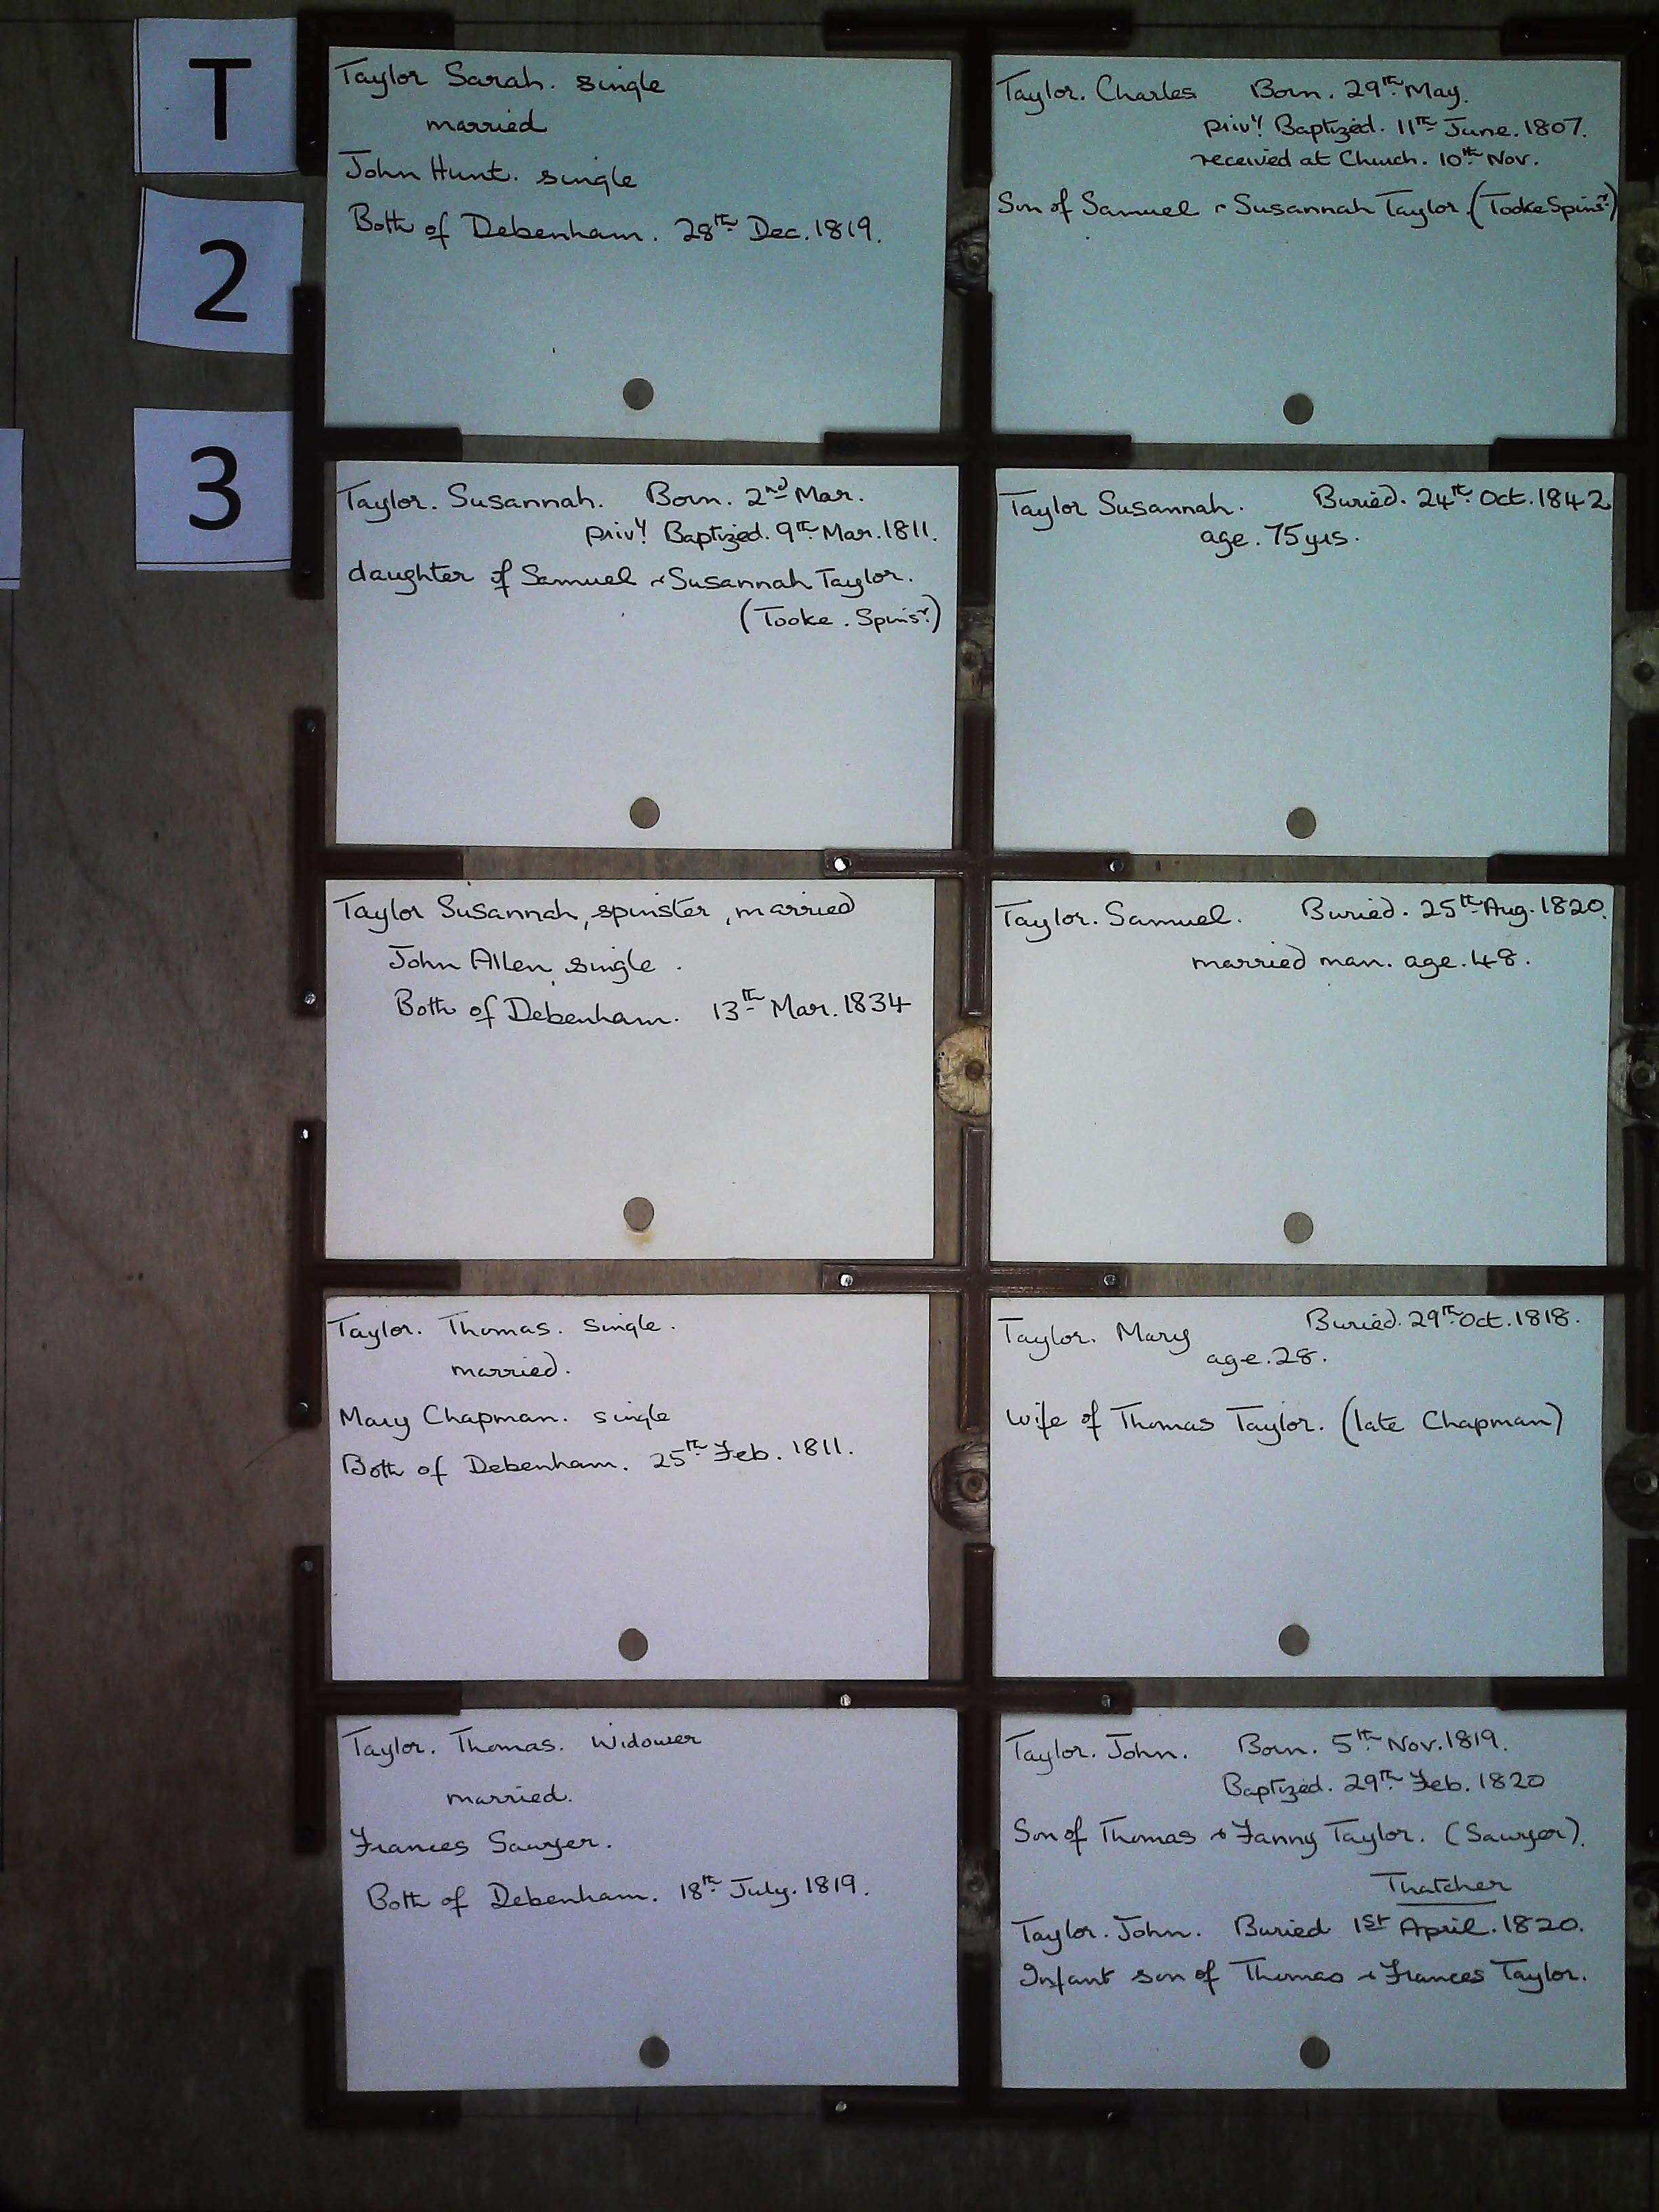 T
2
3
Taylor Sarah. single
married
John Hunt. single
Both of Debenham. 28th Dec. 1819.
Taylor. Charles Born. 29th May.
privy! Baptized. 11th June. 1807.
received at Church. 10th Nov.
Son of Samuel & Susannah Taylor. (Tooke Spinsr.)
Taylor. Susannah. Born. 2nd Mar.
privy! Baptized. 9th Mar. 1811.
daughter of Samuel & Susannah Taylor.
(Tooke. Spinsr.)
Taylor Susannah. Buried. 24th Oct. 1842
age. 75 yrs.
Taylor Susannah, spinster, married
John Allen, single.
Both of Debenham. 13th Mar. 1834
Taylor. Samuel. Buried. 25th Aug. 1820.
married man. age. 48.
Taylor. Thomas. single.
married.
Mary Chapman. single
Both of Debenham. 25th Feb. 1811.
Taylor. Mary Buried. 29th Oct. 1818.
age. 28.
Wife of Thomas Taylor. (late Chapman)
Taylor. Thomas. Widower
married.
Frances Sawyer.
Both of Debenham. 18th July. 1819.
Taylor. John. Born. 5th Nov. 1819.
Baptized. 29th Feb. 1820
Son of Thomas & Fanny Taylor. (Sawyer).
Thatcher
Taylor. John. Buried 1st April. 1820.
Infant son of Thomas & Frances Taylor.